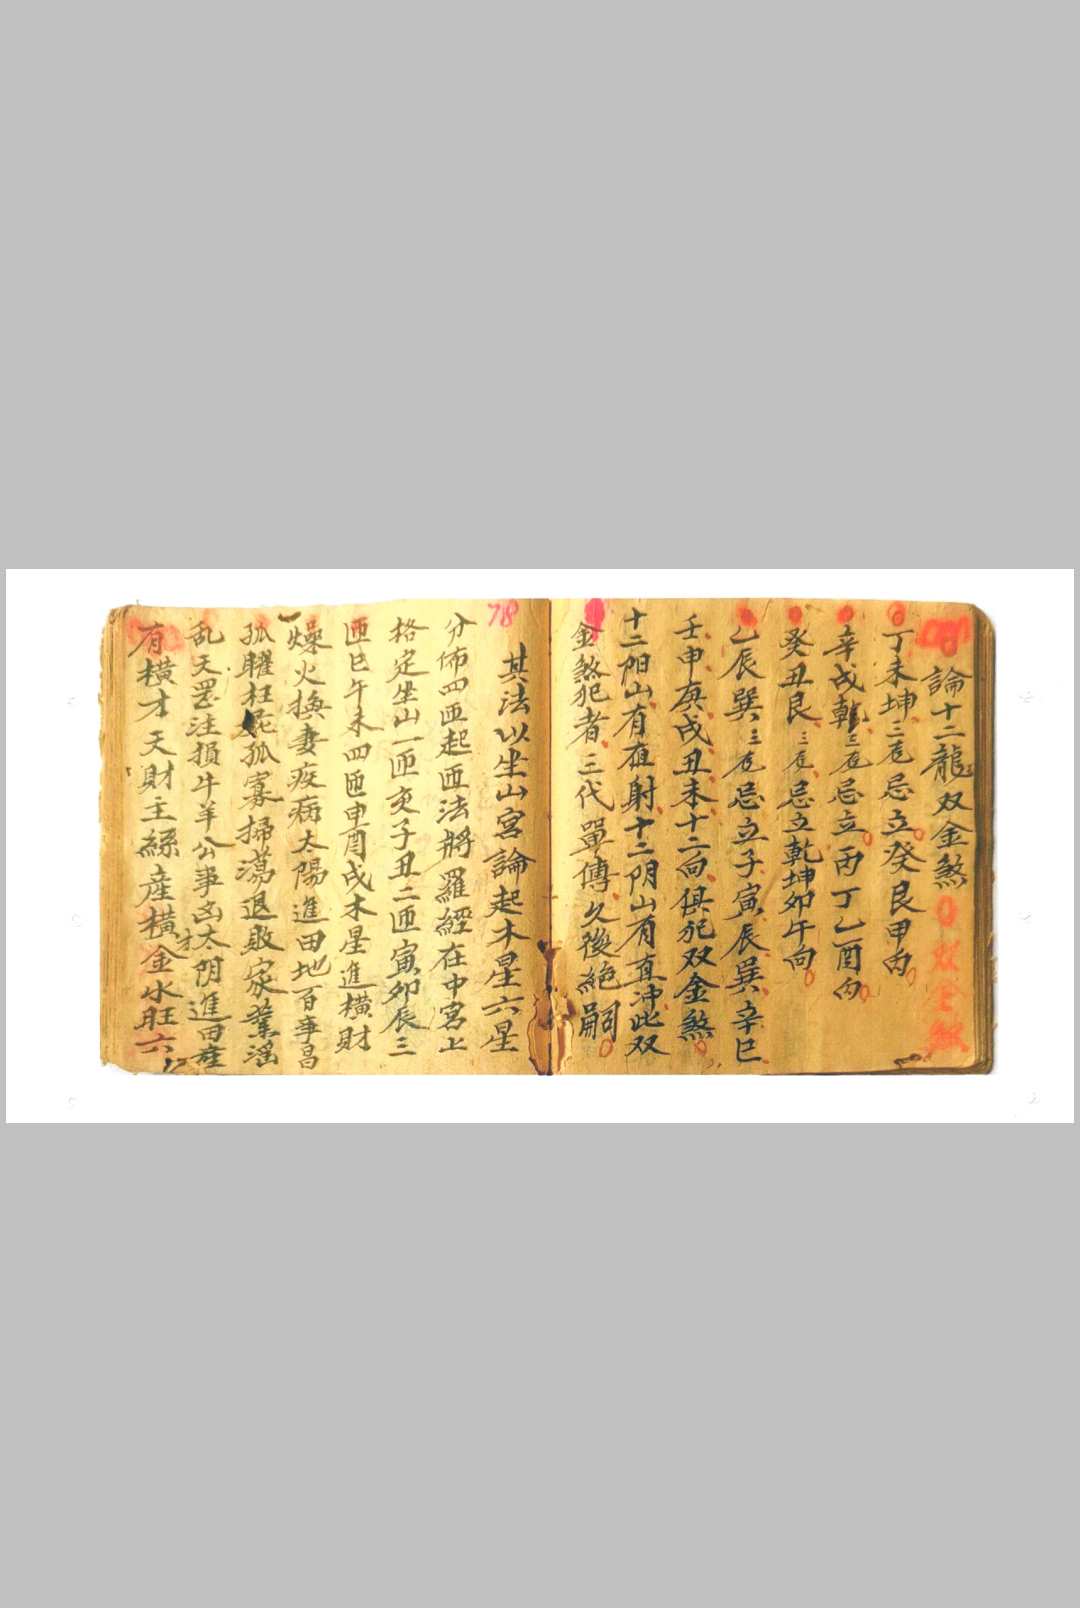 論十二龍双金煞
双金煞
丁未坤三龙忌立癸艮甲向
辛戌乾三龙忌立丙丁乙酉向
癸丑艮三龙忌立乾坤卯午向
乙辰巽三龙忌立子寅辰巽辛巳
壬申庚戌丑未十二向俱犯双金煞
十二阳山有直射十二阴山有直冲此双
金煞犯者三代單傳久後絶嗣
78
其法以坐山宮論起木星六星
分佈四匝起匝法將羅經在中宮上
格定坐山一匝亥子丑二匝寅卯辰三
匝巳午未四匝申酉戌木星進横財
燥火換妻疫病太陽進田地百事昌
孤矅枉死孤寡掃蕩退敗家業滛
乱天罡注損牛羊公事凶太阴進田產
有横才天財主絲產横才金水旺六